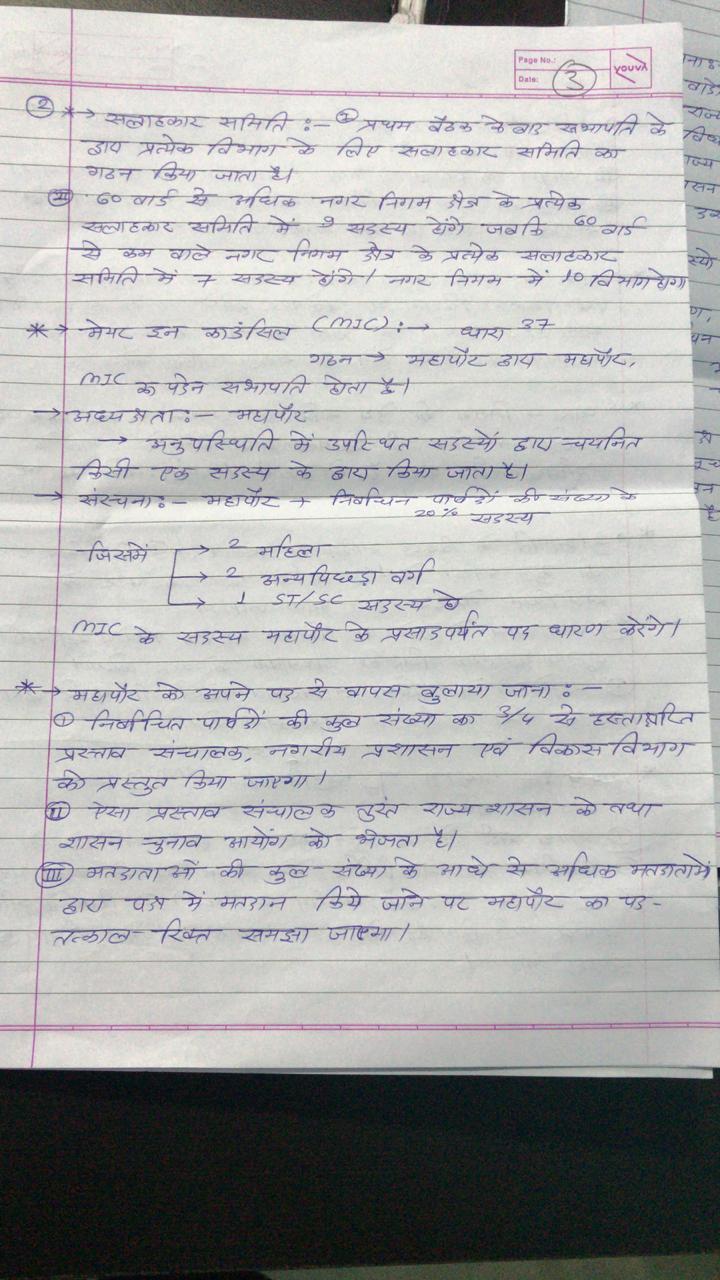 Page No.:
Date:
3
YOUVA
② *→ सलाहकार समिति :- ① प्रथम बैठक के बाद सभापति के
द्वारा प्रत्येक विभाग के लिए सलाहकार समिति का
गठन किया जाता है।
II 60 वार्ड से अधिक नगर निगम क्षेत्र के प्रत्येक
सलाहकार समिति में 9 सदस्य होंगे जबकि 60 वार्ड
से कम वाले नगर निगम क्षेत्र के प्रत्येक सलाहकार
समिति में 7 सदस्य होंगे। नगर निगम में 10 विभाग होगा
*→ मेयर इन काउंसिल (MIC) :→ धारा 37
गठन → महापौर द्वारा महापौर,
MIC का पदेन सभापति होता है।
→ अध्यक्षता :- महापौर
→ अनुपस्थिति में उपस्थित सदस्यों द्वारा चयनित
किसी एक सदस्य के द्वारा किया जाता है।
→ संरचना :- महापौर + निर्वाचित पार्षदों की संख्या के
20% सदस्य
जिसमें → 2 महिला
→ 2 अन्य पिछड़ा वर्ग
→ 1 ST/SC सदस्य हो
MIC के सदस्य महापौर के प्रसादपर्यंत पद धारण करेंगे।
*→ महापौर को अपने पद से वापस बुलाया जाना :-
① निर्वाचित पार्षदों की कुल संख्या का 3/4 से हस्ताक्षरित
प्रस्ताव संचालक, नगरीय प्रशासन एवं विकास विभाग
को प्रस्तुत किया जाएगा।
II ऐसा प्रस्ताव संचालक तुरंत राज्य शासन को तथा
शासन चुनाव आयोग को भेजता है।
III मतदाताओं की कुल संख्या के आधे से अधिक मतदाताओं
द्वारा पक्ष में मतदान किये जाने पर महापौर का पद-
तत्काल रिक्त समझा जाएगा।